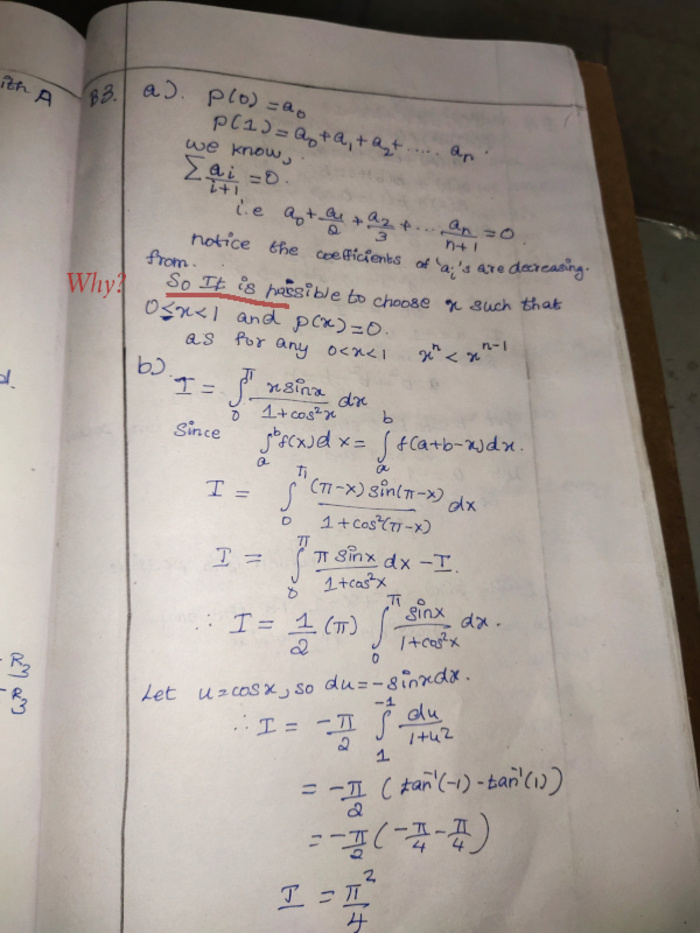 ith A
B3. a). p(0) = a₀
p(1) = a₀ + a₁ + a₂ + ..... aₙ.
we know,
∑ aᵢ/(i+1) = 0.
i.e a₀ + a₁/2 + a₂/3 + ... aₙ/(n+1) = 0
notice the coefficients of 'aᵢ's are decreasing.
from.
Why? So It is possible to choose x such that
0 ≤ x < 1 and p(x) = 0.
as for any 0 < x < 1 xⁿ < xⁿ⁻¹
d.
b).
I = ∫₀^π (x sinx)/(1 + cos²x) dx
Since ∫ₐᵇ f(x) dx = ∫ₐᵇ f(a+b-x) dx.
I = ∫₀^π ((π-x) sin(π-x))/(1 + cos²(π-x)) dx
I = ∫₀^π (π sinx)/(1 + cos²x) dx - I.
∴ I = 1/2 (π) ∫₀^π sinx/(1 + cos²x) dx.
- R₃
- R₃
Let u = cosx, so du = -sinx dx.
∴ I = -π/2 ∫₁^-1 du/(1 + u²)
= -π/2 (tan⁻¹(-1) - tan⁻¹(1))
= -π/2 (-π/4 - π/4)
I = π²/4